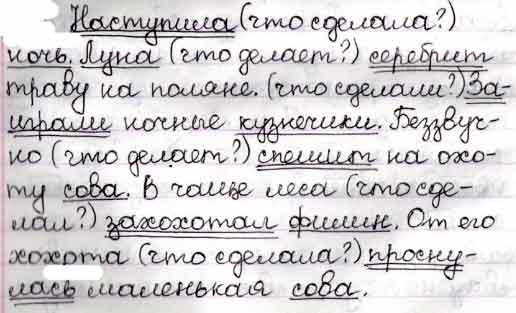 Наступила (что сделала?)
ночь. Луна (что делает?) серебрит
траву на поляне. (что сделали?) За-
играли ночные кузнечики. Беззвуч-
но (что делает?) спешит на охо-
ту сова. В чаще леса (что сде-
лал?) захохотал филин. От его
хохота (что сделала?) просну-
лась маленькая сова.